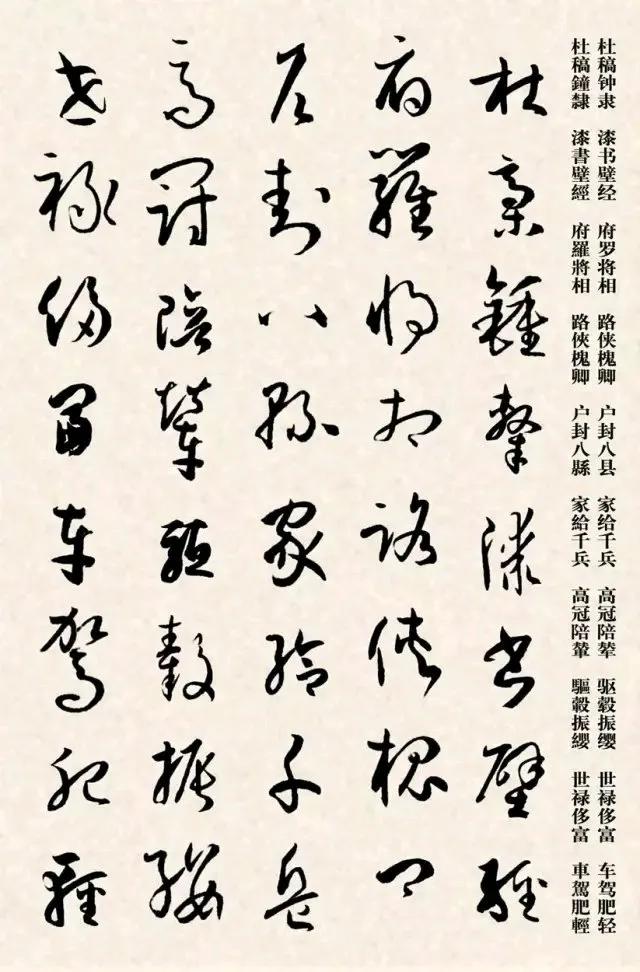 杜稿钟隶 漆书壁经 府罗将相 路俠槐卿 户封八县 家给千兵 高冠陪辇 驱毂振缨 世禄侈富 车驾肥轻
杜稿鐘隸 漆書壁經 府羅將相 路俠槐卿 户封八縣 家給千兵 高冠陪輦 驅轂振纓 世禄侈富 車駕肥輕
杜稾鍾隸漆書壁經
府羅將相路俠槐卿
户封八縣家給千兵
高冠陪輦驅轂振纓
世禄侈富車駕肥輕